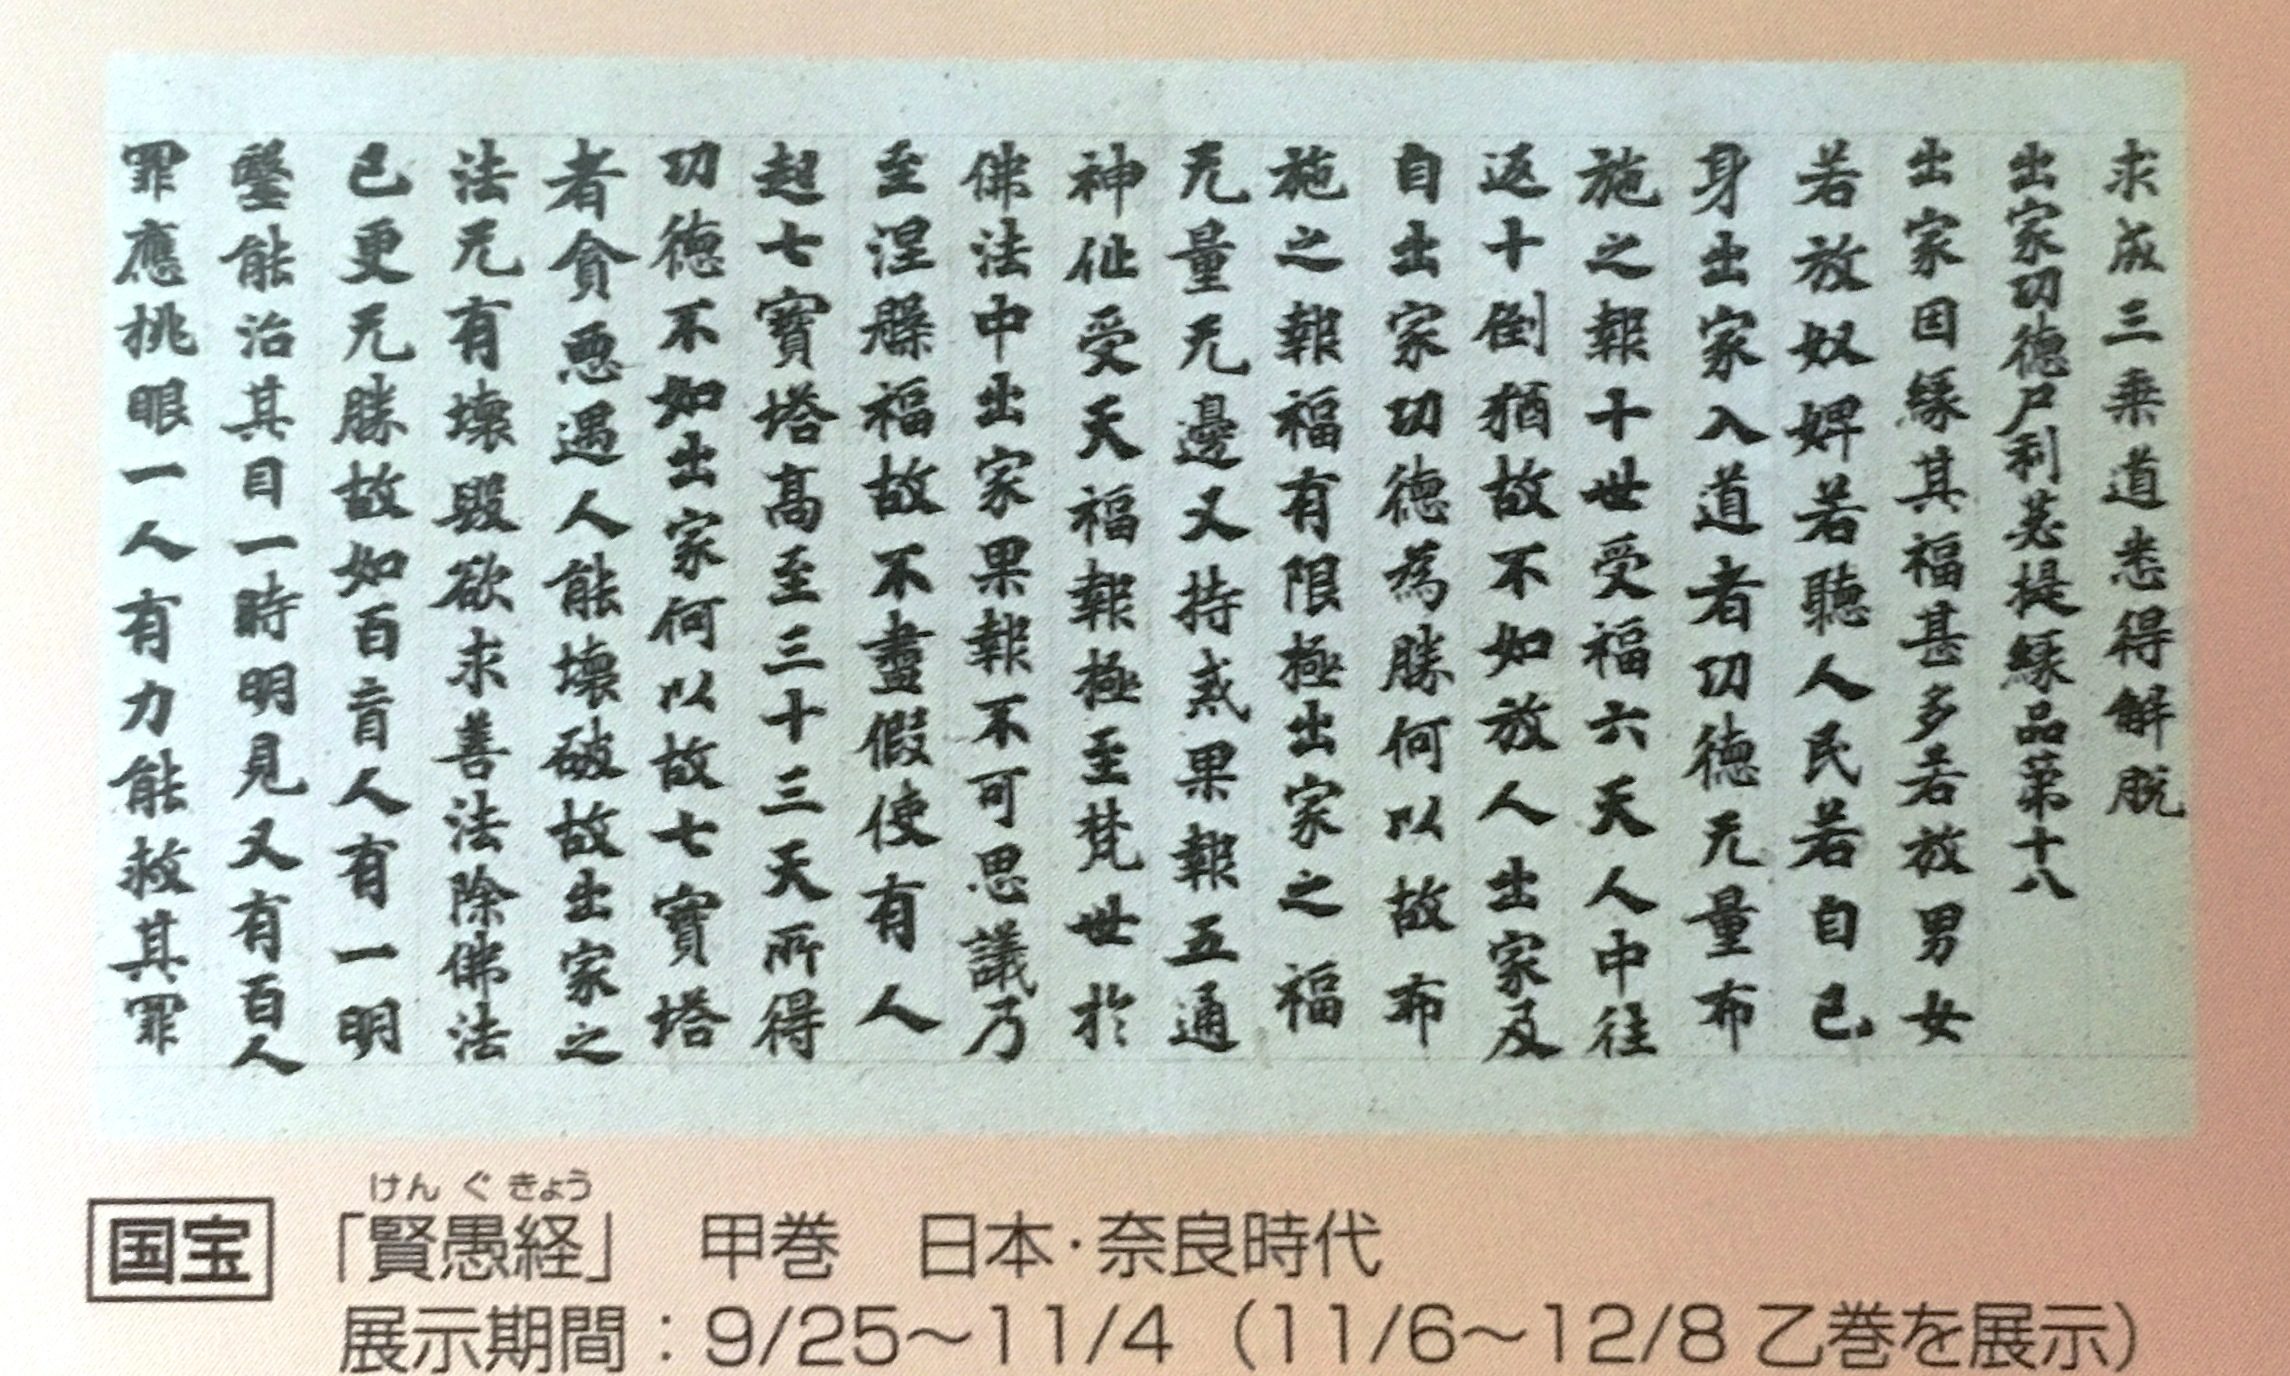 求成三乗道悉得解脱
出家功德尸利苾提縁品第十八
出家因縁其福甚多若放男女
若放奴婢若聽人民若自己
身出家入道者功德无量布
施之報十世受福六天人中往
返十倒猶故不如放人出家及
自出家功德為勝何以故布
施之報福有限極出家之福
无量无邊又持戒果報五通
神仙受天福報極至梵世於
佛法中出家果報不可思議乃
至涅槃福故不盡假使有人
起七寶塔高至三十三天所得
功德不如出家何以故七寶塔
者貪惡遇人能壞破故出家之
法无有壞毀欲求善法除佛法
已更无勝故如百盲人有一明
毉能治其目一時明見又有百人
罪應挑眼一人有力能救其罪
けんぐきょう
国宝 「賢愚経」 甲巻 日本・奈良時代
展示期間：9/25〜11/4（11/6〜12/8 乙巻を展示）